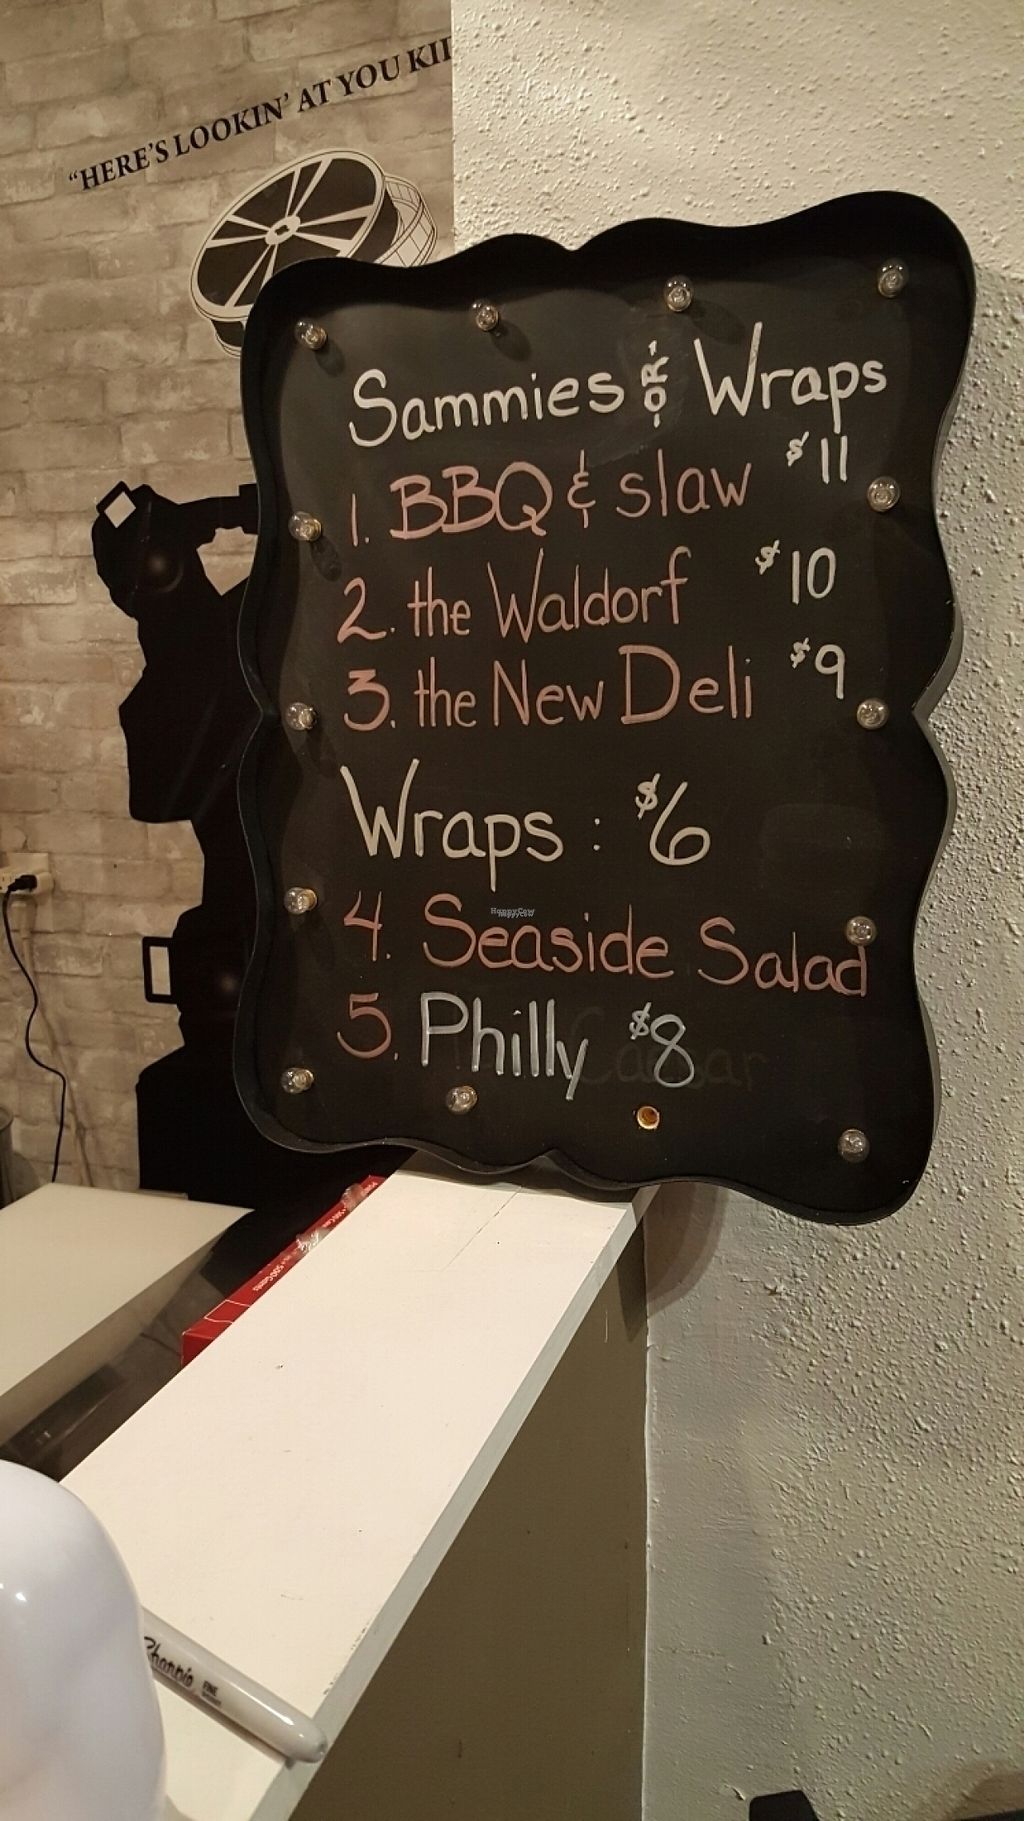 “HERE'S LOOKIN' AT YOU KI
Sammies OR Wraps
1. BBQ & slaw $11
2. the Waldorf $10
3. the New Deli $9
Wraps : $6
4. Seaside Salad
5. Philly $8
Caesar
HappyCow
500 Count
Sharpie
FINE